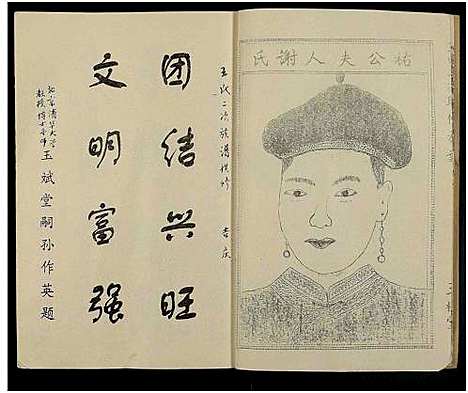 祐公夫人謝氏
王氏二次族谱横修
吉庆
团结兴旺
文明富强
北京清华大学
教授博士导师
玉斌堂嗣孙作英题